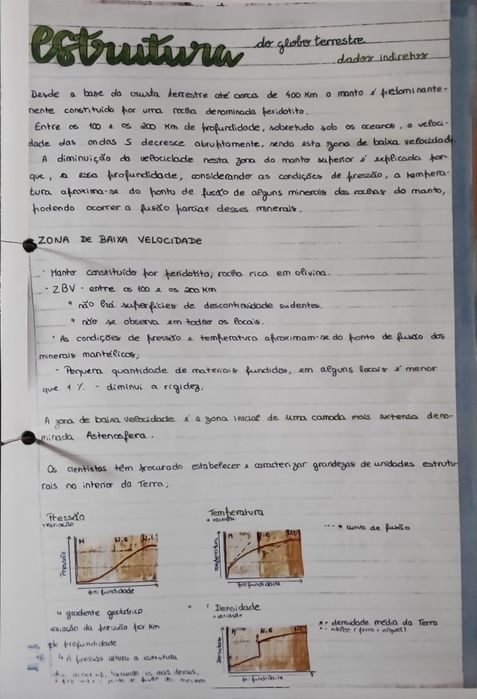 estrutura do globo terrestre
dados indiretos
Desde a base da crusta terrestre até cerca de 400 Km o manto é predominante-
nente constituído por uma rocha denominada peridotito.
Entre os 100 e os 200 Km de profundidade, sobretudo sob os oceanos, a veloci-
dade das ondas S decresce abruptamente, sendo esta zona de baixa velocidade.
A diminuição da velocidade nesta zona do manto superior é explicada por-
que, a essa profundidade, considerando as condições de pressão, a tempera-
tura aproxima-se do ponto de fusão de alguns minerais das rochas do manto,
podendo ocorrer a fusão parcial desses minerais.
ZONA DE BAIXA VELOCIDADE
· Manto constituído por peridotito, rocha rica em olivina.
· ZBV - entre os 100 e os 200 Km
* não há superfícies de descontinuidade evidentes.
* não se observa em todos os locais.
· As condições de pressão e temperatura aproximam-se do ponto de fusão dos
minerais mantélicos;
· Pequena quantidade de materiais fundidos, em alguns locais é menor
que 1 % - diminui a rigidez.
A zona de baixa velocidade é a zona inicial de uma camada mais extensa deno-
minada Astenosfera.
Os cientistas têm procurado estabelecer e caracterizar grandezas de unidades estrutu-
rais no interior da Terra;
Pressão
variação
Temperatura
--- curva de fusão
M N.E N.I
Pressão
profundidade
M N.E
Temperatura
profundidade
↳ gradiente geobárico
variação da pressão por Km
de profundidade
↳ A pressão altera a estrutura
Densidade
variação
densidade média da Terra
núcleo (ferro e níquel)
M N.E
Densidade
profundidade